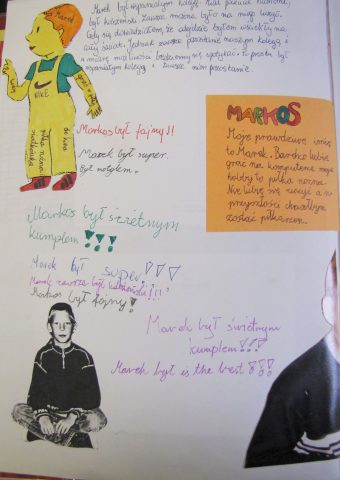 Marek był wspaniałym kolegą
być kolezeński. Zawsze można było na niego liczyć.
cały świat. Jednak zawsze pozostanie naszym kolegą i
w miarę możliwości będziemy się spotykać. To prostu był
wspaniałym kolegą i zawsze nim pozostanie.
Marek
NIKE
piłka nożna
Markos był fajny!!
Marek był super.
Był motylem.
MARKOS
Moje prawdziwe imię
to Marek. Bardzo lubię
grać na komputerze moje
hobby to piłka nożna.
Nie lubię się uczyć a w
przyszłości chciałbym
zostać piłkarzem.
Markos był świetnym
kumplem!!!
Marek był super!!!
Marek zawsze był
Markos był fajny!
Marek był świetnym
kumplem!!!
Marek był is the best!!!